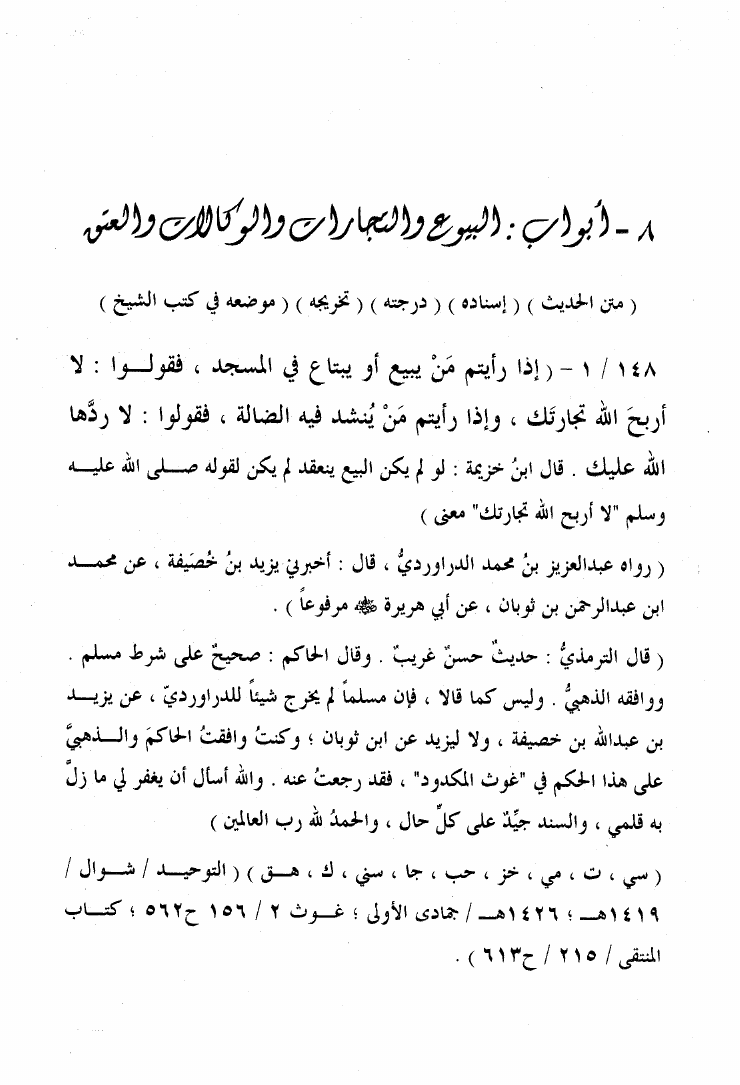 ٨ - أبواب : البيوع والتجارات والوكالات والعتق
( متن الحديث ) ( إسناده ) ( درجته ) ( تخريجه ) ( موضعه في كتب الشيخ )
١٤٨ / ١ - ( إذا رأيتم مَنْ يبيع أو يبتاع في المسجد ، فقولــوا : لا
أربحَ الله تجارتَك ، وإذا رأيتم مَنْ يُنشد فيه الضالة ، فقولوا : لا ردَّها
الله عليك . قال ابنُ خزيمة : لو لم يكن البيع ينعقد لم يكن لقوله صــلى الله عليــه
وسلم "لا أربح الله تجارتك" معنى )
( رواه عبدالعزيز بنُ محمد الدراورديُّ ، قال : أخبرني يزيد بنُ خُصَيفة ، عن محمــد
ابن عبدالرحمن بن ثوبان ، عن أبي هريرة ﷺ مرفوعاً ) .
( قال الترمذيُّ : حديثٌ حسنٌ غريبٌ . وقال الحاكم : صحيحٌ على شرط مسلم .
ووافقه الذهبيُّ . وليس كما قالا ، فإن مسلماً لم يخرج شيئاً للدراورديّ ، عن يزيــد
بن عبدالله بن خصيفة ، ولا ليزيد عن ابن ثوبان ؛ وكنتُ وافقتُ الحاكمَ والــذهبيَّ
على هذا الحكم في "غوث المكدود" ، فقد رجعتُ عنه . والله أسأل أن يغفر لي ما زلَّ
به قلمي ، والسند جيِّدٌ على كلِّ حال ، والحمدُ لله رب العالمين )
( سي ، ت ، مي ، خز ، حب ، جا ، سني ، ك ، هــق ) ( التوحيــد / شــوال /
١٤١٩هــ ؛ ١٤٢٦هــ / جمادى الأولى ؛ غــوث ٢ / ١٥٦ ح٥٦٢ ؛ كتــاب
المنتقى / ٢١٥ / ح٦١٣ ) .